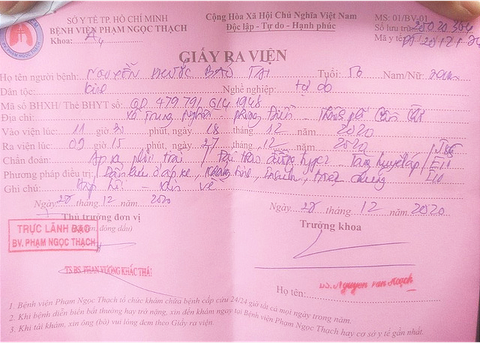 SỞ Y TẾ TP. HỒ CHÍ MINH
BỆNH VIỆN PHẠM NGỌC THẠCH
Khoa: A4
Cộng Hòa Xã Hội Chủ Nghĩa Việt Nam
Độc lập - Tự do - Hạnh phúc
MS: 01/BV-01
Số lưu trữ
Mã Y tế
GIẤY RA VIỆN
Họ tên người bệnh: NGUYỄN PHƯỚC BẢO TẠI Tuổi: 56 Nam/Nữ: Nam
Dân tộc: Kinh Nghề nghiệp: tự do
Mã số BHXH/ Thẻ BHYT số GD 479 791 614 1948
Địa chỉ: Thành phố Cần Thơ
Vào viện lúc: 11 giờ 30 phút, ngày 18 tháng 12 năm 2020
Ra viện lúc: 09 giờ 15 phút, ngày 27 tháng 12 năm 2020
Chẩn đoán: Áp xe phổi trái / Đái tháo đường type Tăng huyết áp
Phương pháp điều trị: Kháng sinh, Insulin
Ghi chú:
Ngày 28 tháng 12 năm 2020
Thủ trưởng đơn vị
(Ký tên, đóng dấu)
TRỰC LÃNH ĐẠO
BV. PHẠM NGỌC THẠCH
Ngày 28 tháng 12 năm 2020
Trưởng khoa
Họ tên:
1. Bệnh viện Phạm Ngọc Thạch tổ chức khám chữa bệnh cấp cứu 24/24 giờ tất cả mọi ngày trong năm.
2. Khi bệnh diễn biến bất thường hay trở nặng, xin đến khám ngay tại Bệnh viện Phạm Ngọc Thạch hay cơ sở y tế gần nhất.
3. Khi tái khám, xin ông (bà) vui lòng đem theo Giấy ra viện.